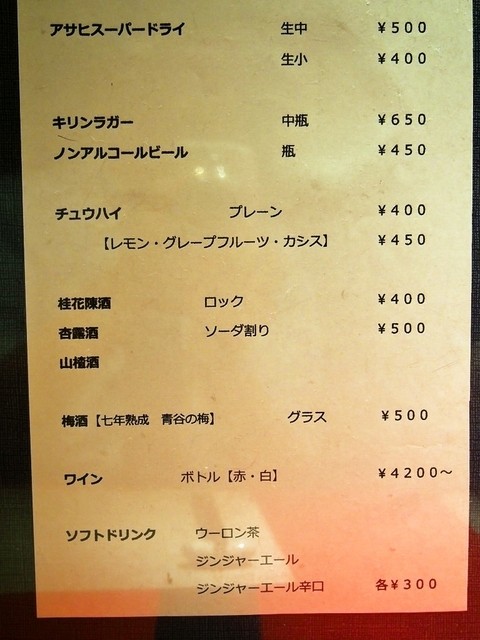 アサヒスーパードライ 生中 ￥５００
生小 ￥４００
キリンラガー 中瓶 ￥６５０
ノンアルコールビール 瓶 ￥４５０
チュウハイ プレーン ￥４００
【レモン・グレープフルーツ・カシス】 ￥４５０
桂花陳酒 ロック ￥４００
杏露酒 ソーダ割り ￥５００
山楂酒
梅酒【七年熟成　青谷の梅】 グラス ￥５００
ワイン ボトル【赤・白】 ￥４２００～
ソフトドリンク ウーロン茶
ジンジャーエール
ジンジャーエール辛口 各￥３００